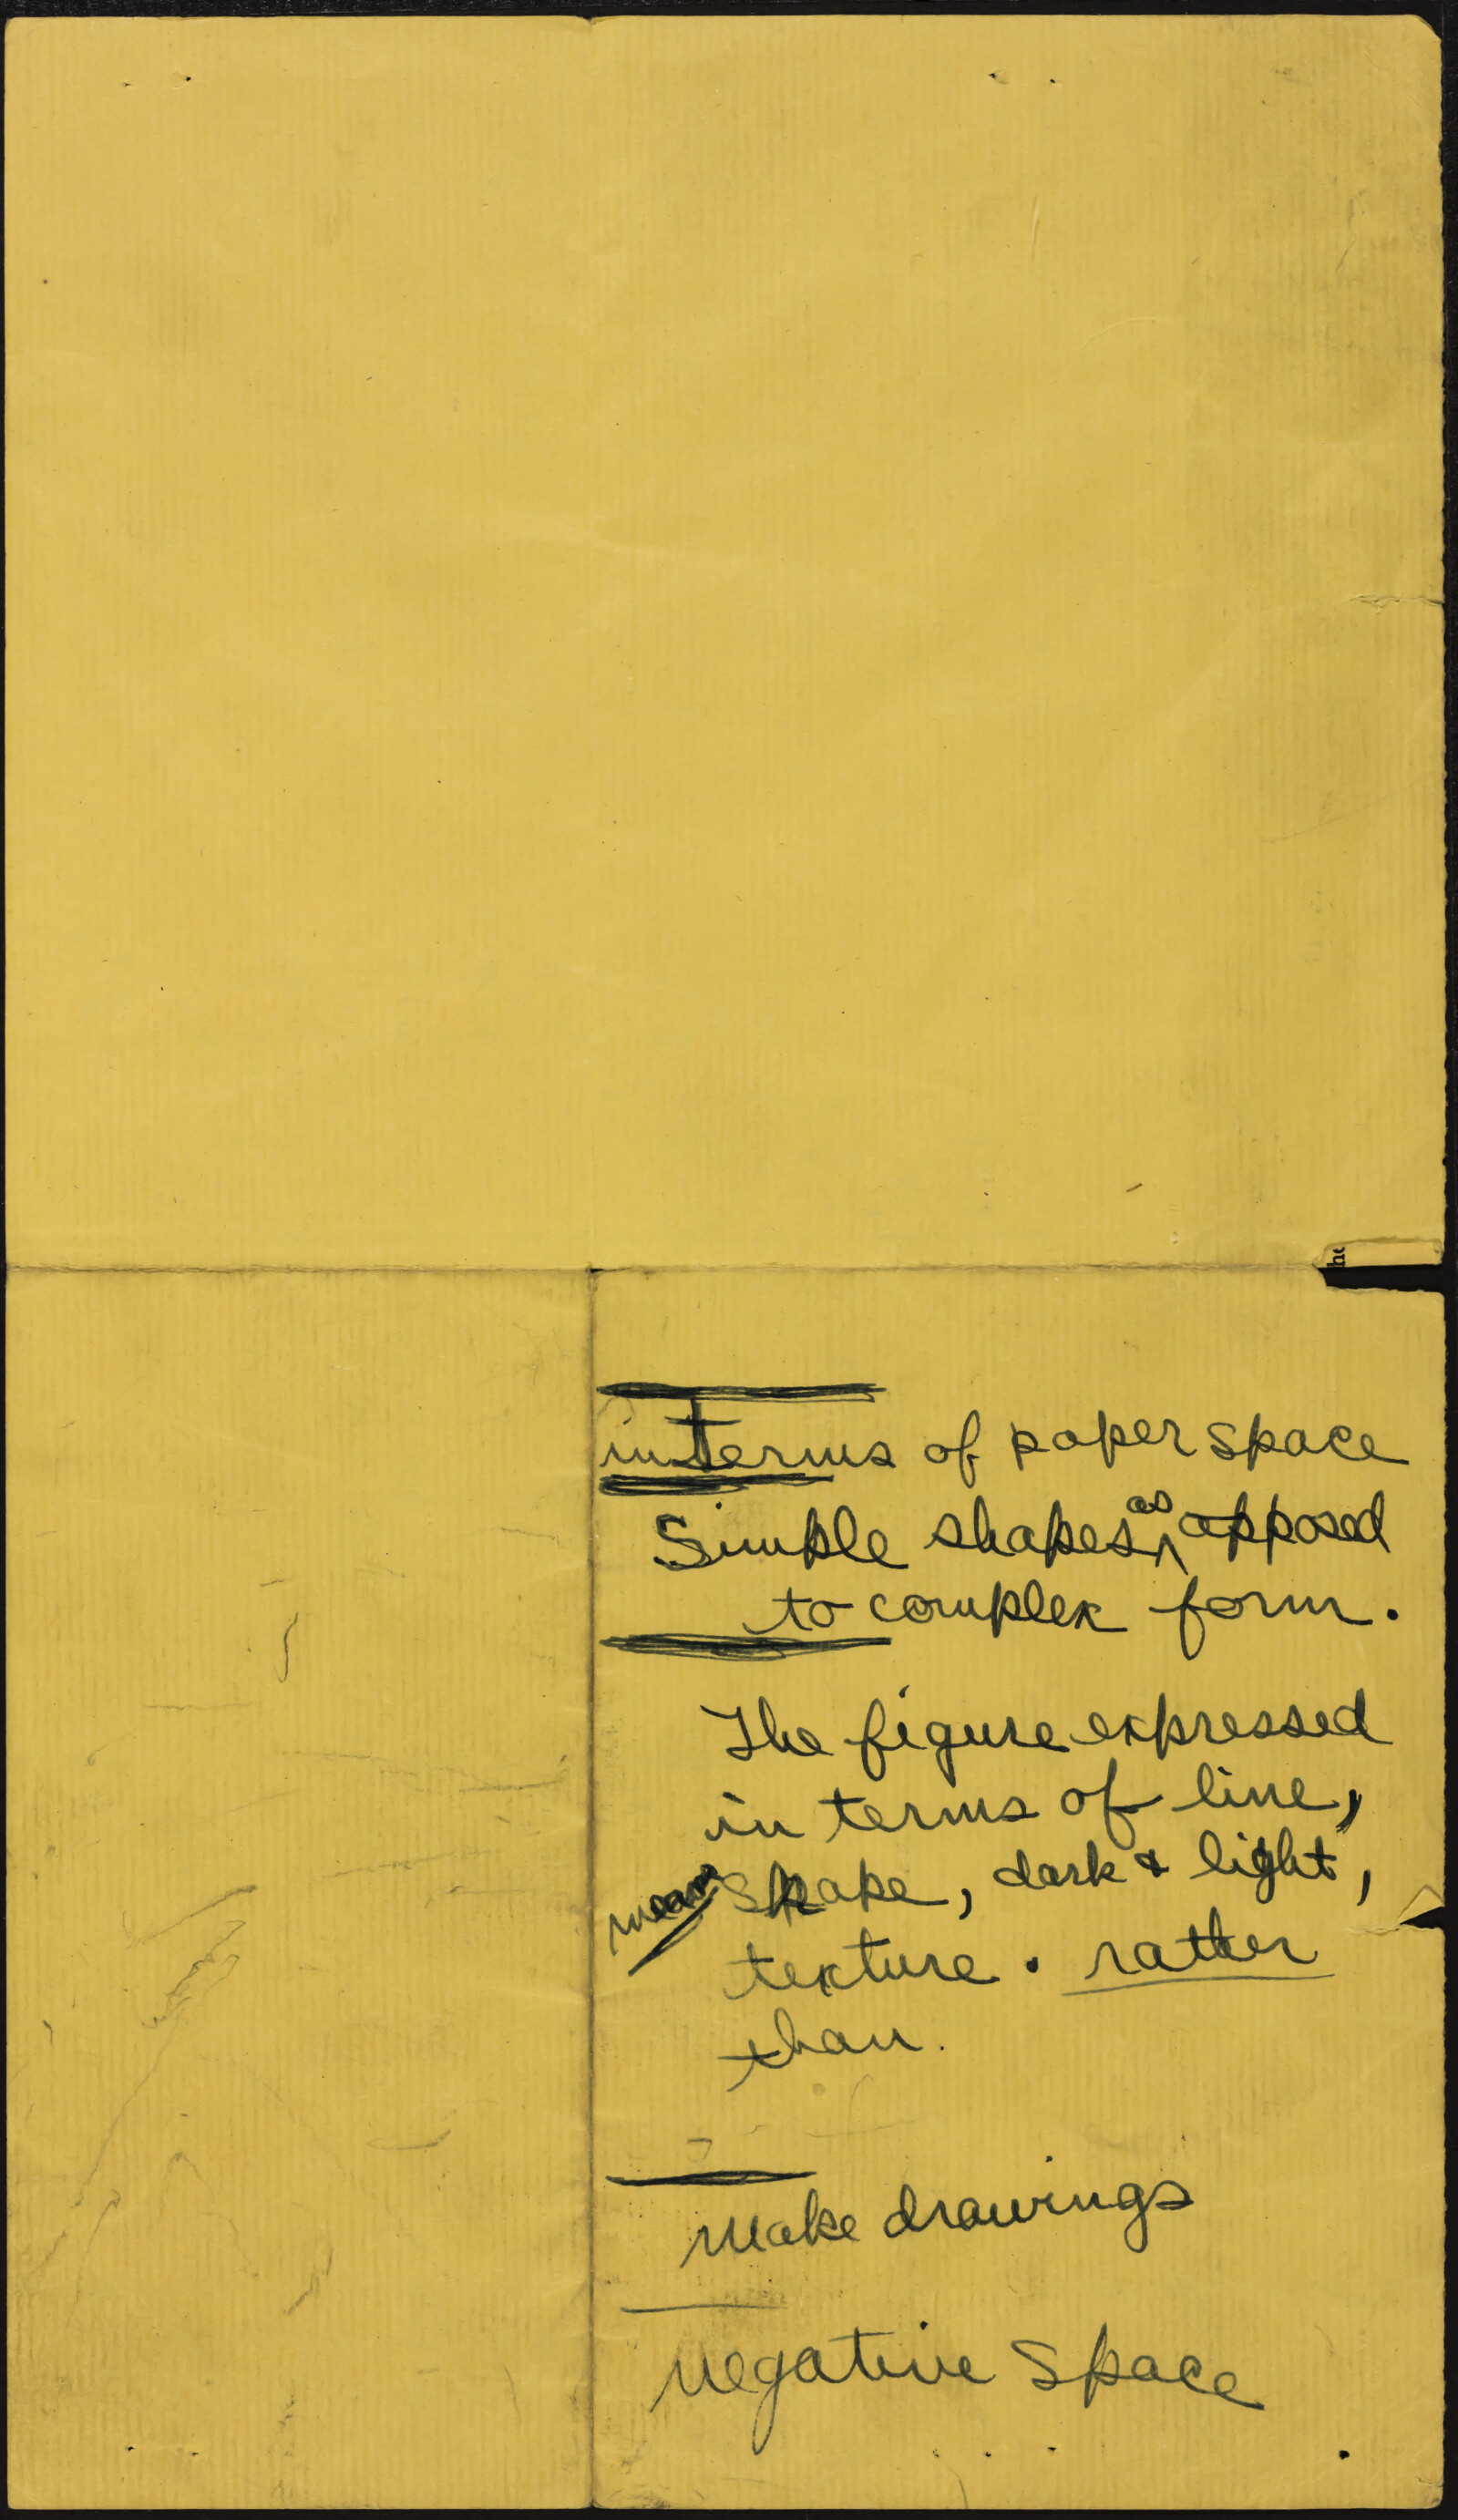 in terms of paper space
Simple shapes as opposed
to complex form.
The figure expressed
in terms of line,
mean shape, dark & light,
texture. rather
than.
Make drawings
Negative Space
he